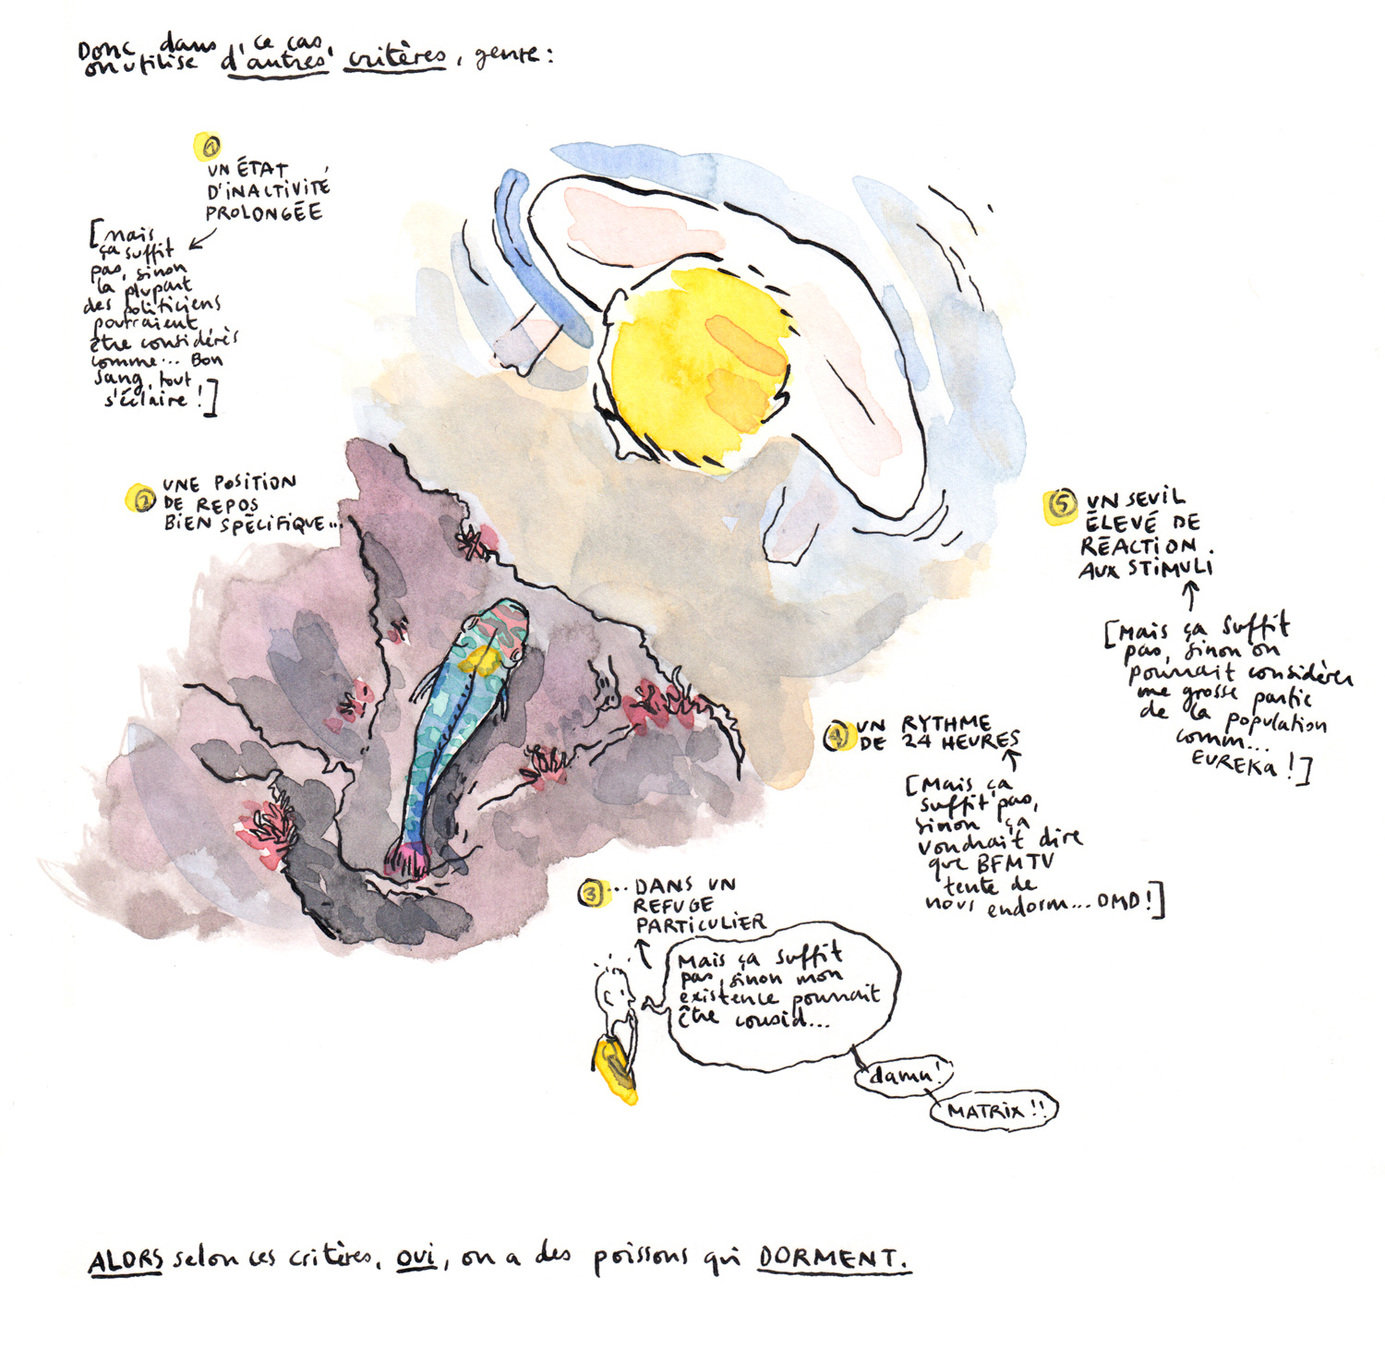 Donc dans ce cas,
on utilise d'autres critères, genre :
1
UN ÉTAT
D'INACTIVITÉ
PROLONGÉE
[Mais
ça suffit
pas, sinon
la plupart
des politiciens
pourraient
être considérés
comme... Bon
sang, tout
s'éclaire !]
2
UNE POSITION
DE REPOS
BIEN SPÉCIFIQUE...
3
... DANS UN
REFUGE
PARTICULIER
Mais ça suffit
pas, sinon mon
existence pourrait
être consid...
damn!
MATRIX !!
4
UN RYTHME
DE 24 HEURES
[Mais ça
suffit pas,
sinon ça
voudrait dire
que BFMTV
tente de
nous endorm... OMD !]
5
UN SEUIL
ÉLEVÉ DE
RÉACTION
AUX STIMULI
[Mais ça suffit
pas, sinon on
pourrait considérer
une grosse partie
de la population
comm...
EUREKA !]
ALORS selon ces critères, OUI, on a des poissons qui DORMENT.